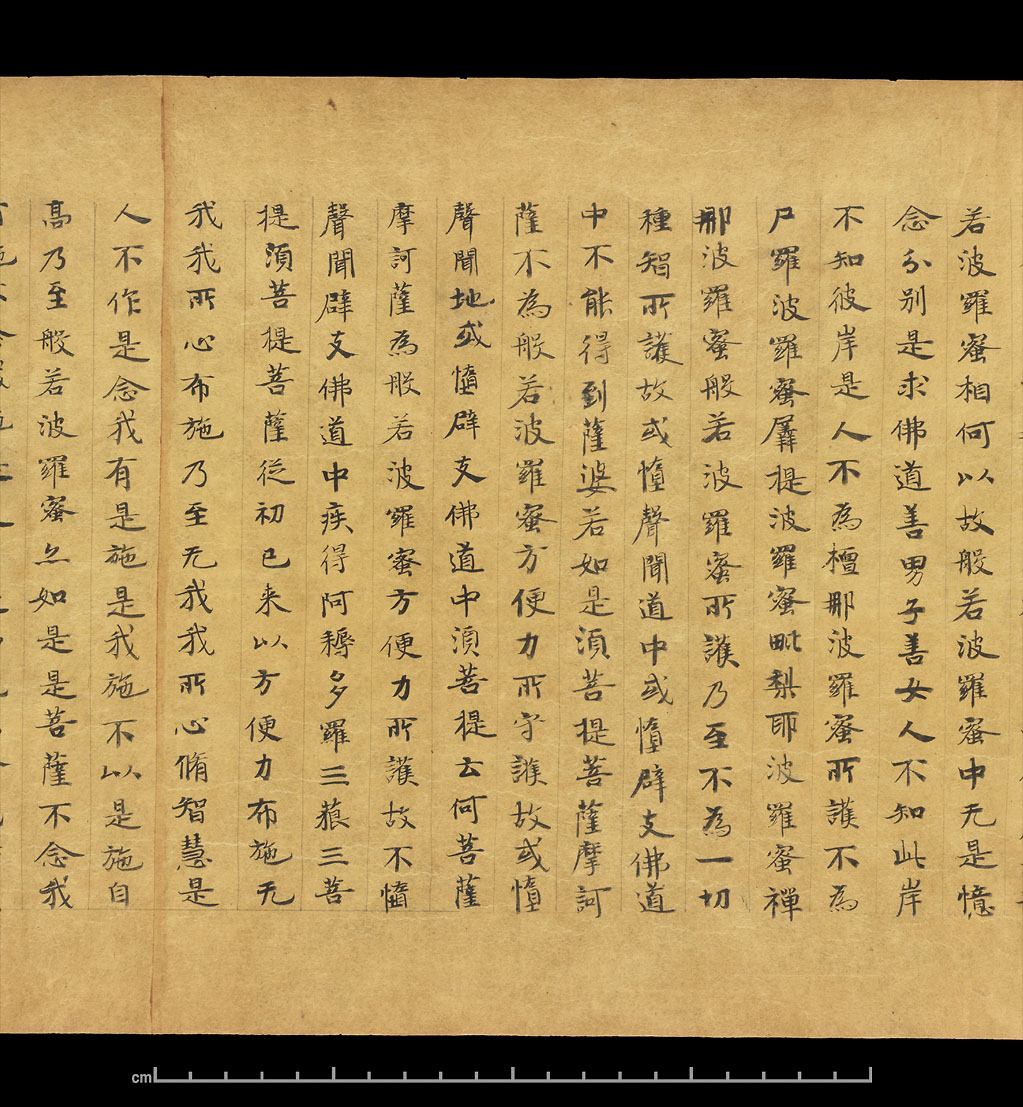 若波羅蜜相何以故般若波羅蜜中无是憶
念分别是求佛道善男子善女人不知此岸
不知彼岸是人不為檀那波羅蜜所護不為
尸羅波羅蜜羼提波羅蜜毗梨耶波羅蜜禪
那波羅蜜般若波羅蜜所護乃至不為一切
種智所護故或憜聲聞道中或憜辟支佛道
中不能得到薩婆若如是湏菩提菩薩摩訶
薩不為般若波羅蜜方便力所守護故或憜
聲聞地或憜辟支佛道中湏菩提云何菩薩
摩訶薩為般若波羅蜜方便力所護故不憜
聲聞辟支佛道中疾得阿耨多羅三藐三菩
提湏菩提菩薩従初已来以方便力布施无
我我所心布施乃至无我我所心脩智慧是
人不作是念我有是施是我施不以是施自
高乃至般若波羅蜜亦如是是菩薩不念我